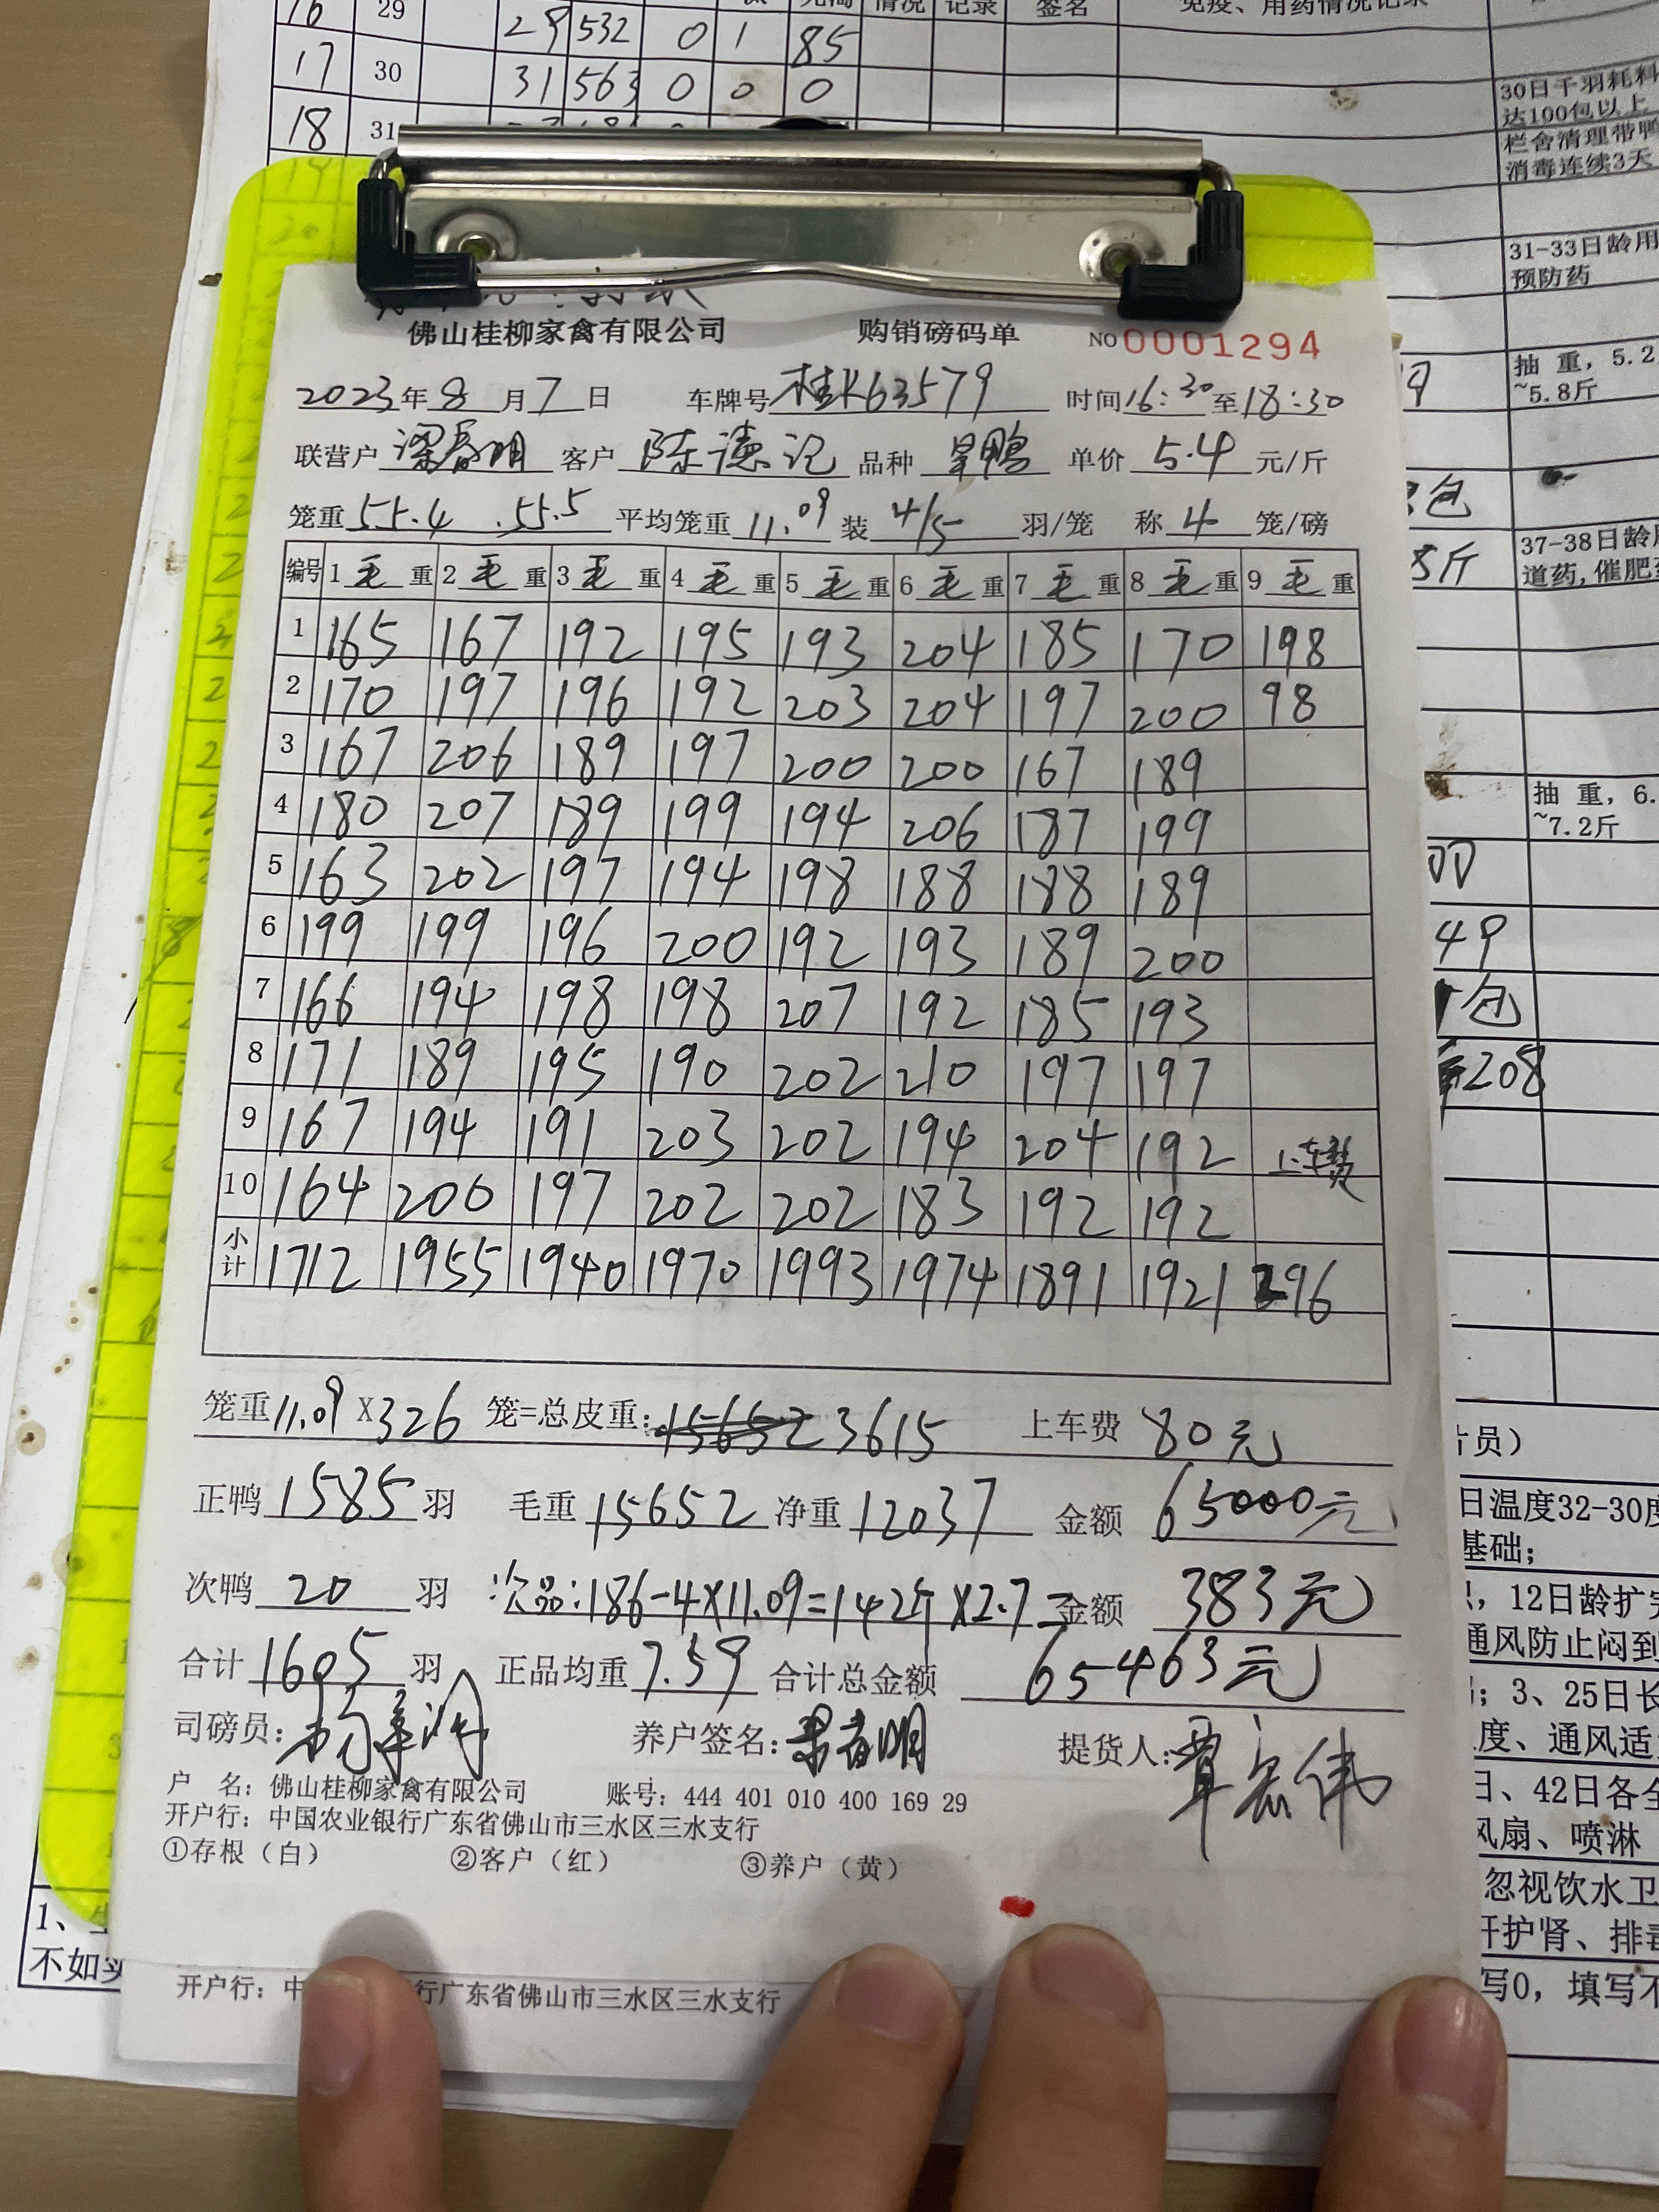 16 29 28 532 0 1 85 情况 记录 签名 免疫、用药情况记录
17 30 31 563 0 0 0
18 31
30日千羽耗料
达100包以上
栏舍清理带鸭
消毒连续3天
31-33日龄用
预防药
抽 重，5.2
~5.8斤
37-38日龄
道药,催肥
抽 重，6.
~7.2斤
49
包
208
佛山桂柳家禽有限公司 购销磅码单 NO 0001294
2023年8月7日 车牌号桂K63579 时间16:30至18:30
联营户 梁春明 客户 陈德记 品种 旱鸭 单价 5.4 元/斤
笼重55.4 .55.5 平均笼重11.09装 4/5 羽/笼 称 4 笼/磅
编号 1毛重 2毛重 3毛重 4毛重 5毛重 6毛重 7毛重 8毛重 9毛重
1 165 167 192 195 193 204 185 170 198
2 170 197 196 192 203 204 197 200 98
3 167 206 189 197 200 200 167 189
4 180 207 189 199 194 206 187 199
5 163 202 197 194 198 188 188 189
6 199 199 196 200 192 193 189 200
7 166 194 198 198 207 192 185 193
8 171 189 195 190 202 210 197 197
9 167 194 191 203 202 194 204 192 上车费
10 164 200 197 202 202 183 192 192
小计 1712 1955 1940 1970 1993 1974 1891 1921 296
笼重11.09 X326 笼=总皮重:15652 3615 上车费 80元
正鸭1585羽 毛重15652净重12037 金额 65000元
次鸭 20 羽 次品:186-4×11.09=142斤×2.7= 金额 383元
合计1605羽 正品均重7.59 合计总金额 65463元
司磅员: 养户签名:梁春明 提货人:覃宏伟
户 名: 佛山桂柳家禽有限公司 账号: 444 401 010 400 169 29
开户行: 中国农业银行广东省佛山市三水区三水支行
①存根（白） ②客户（红） ③养户（黄）
开户行: 中 行广东省佛山市三水区三水支行
员）
日温度32-30度
基础；
，12日龄扩
通风防止闷到
；3、25日长
度、通风适
日、42日各全
风扇、喷淋
忽视饮水卫
肝护肾、排毒
写0，填写不
1、
不如实